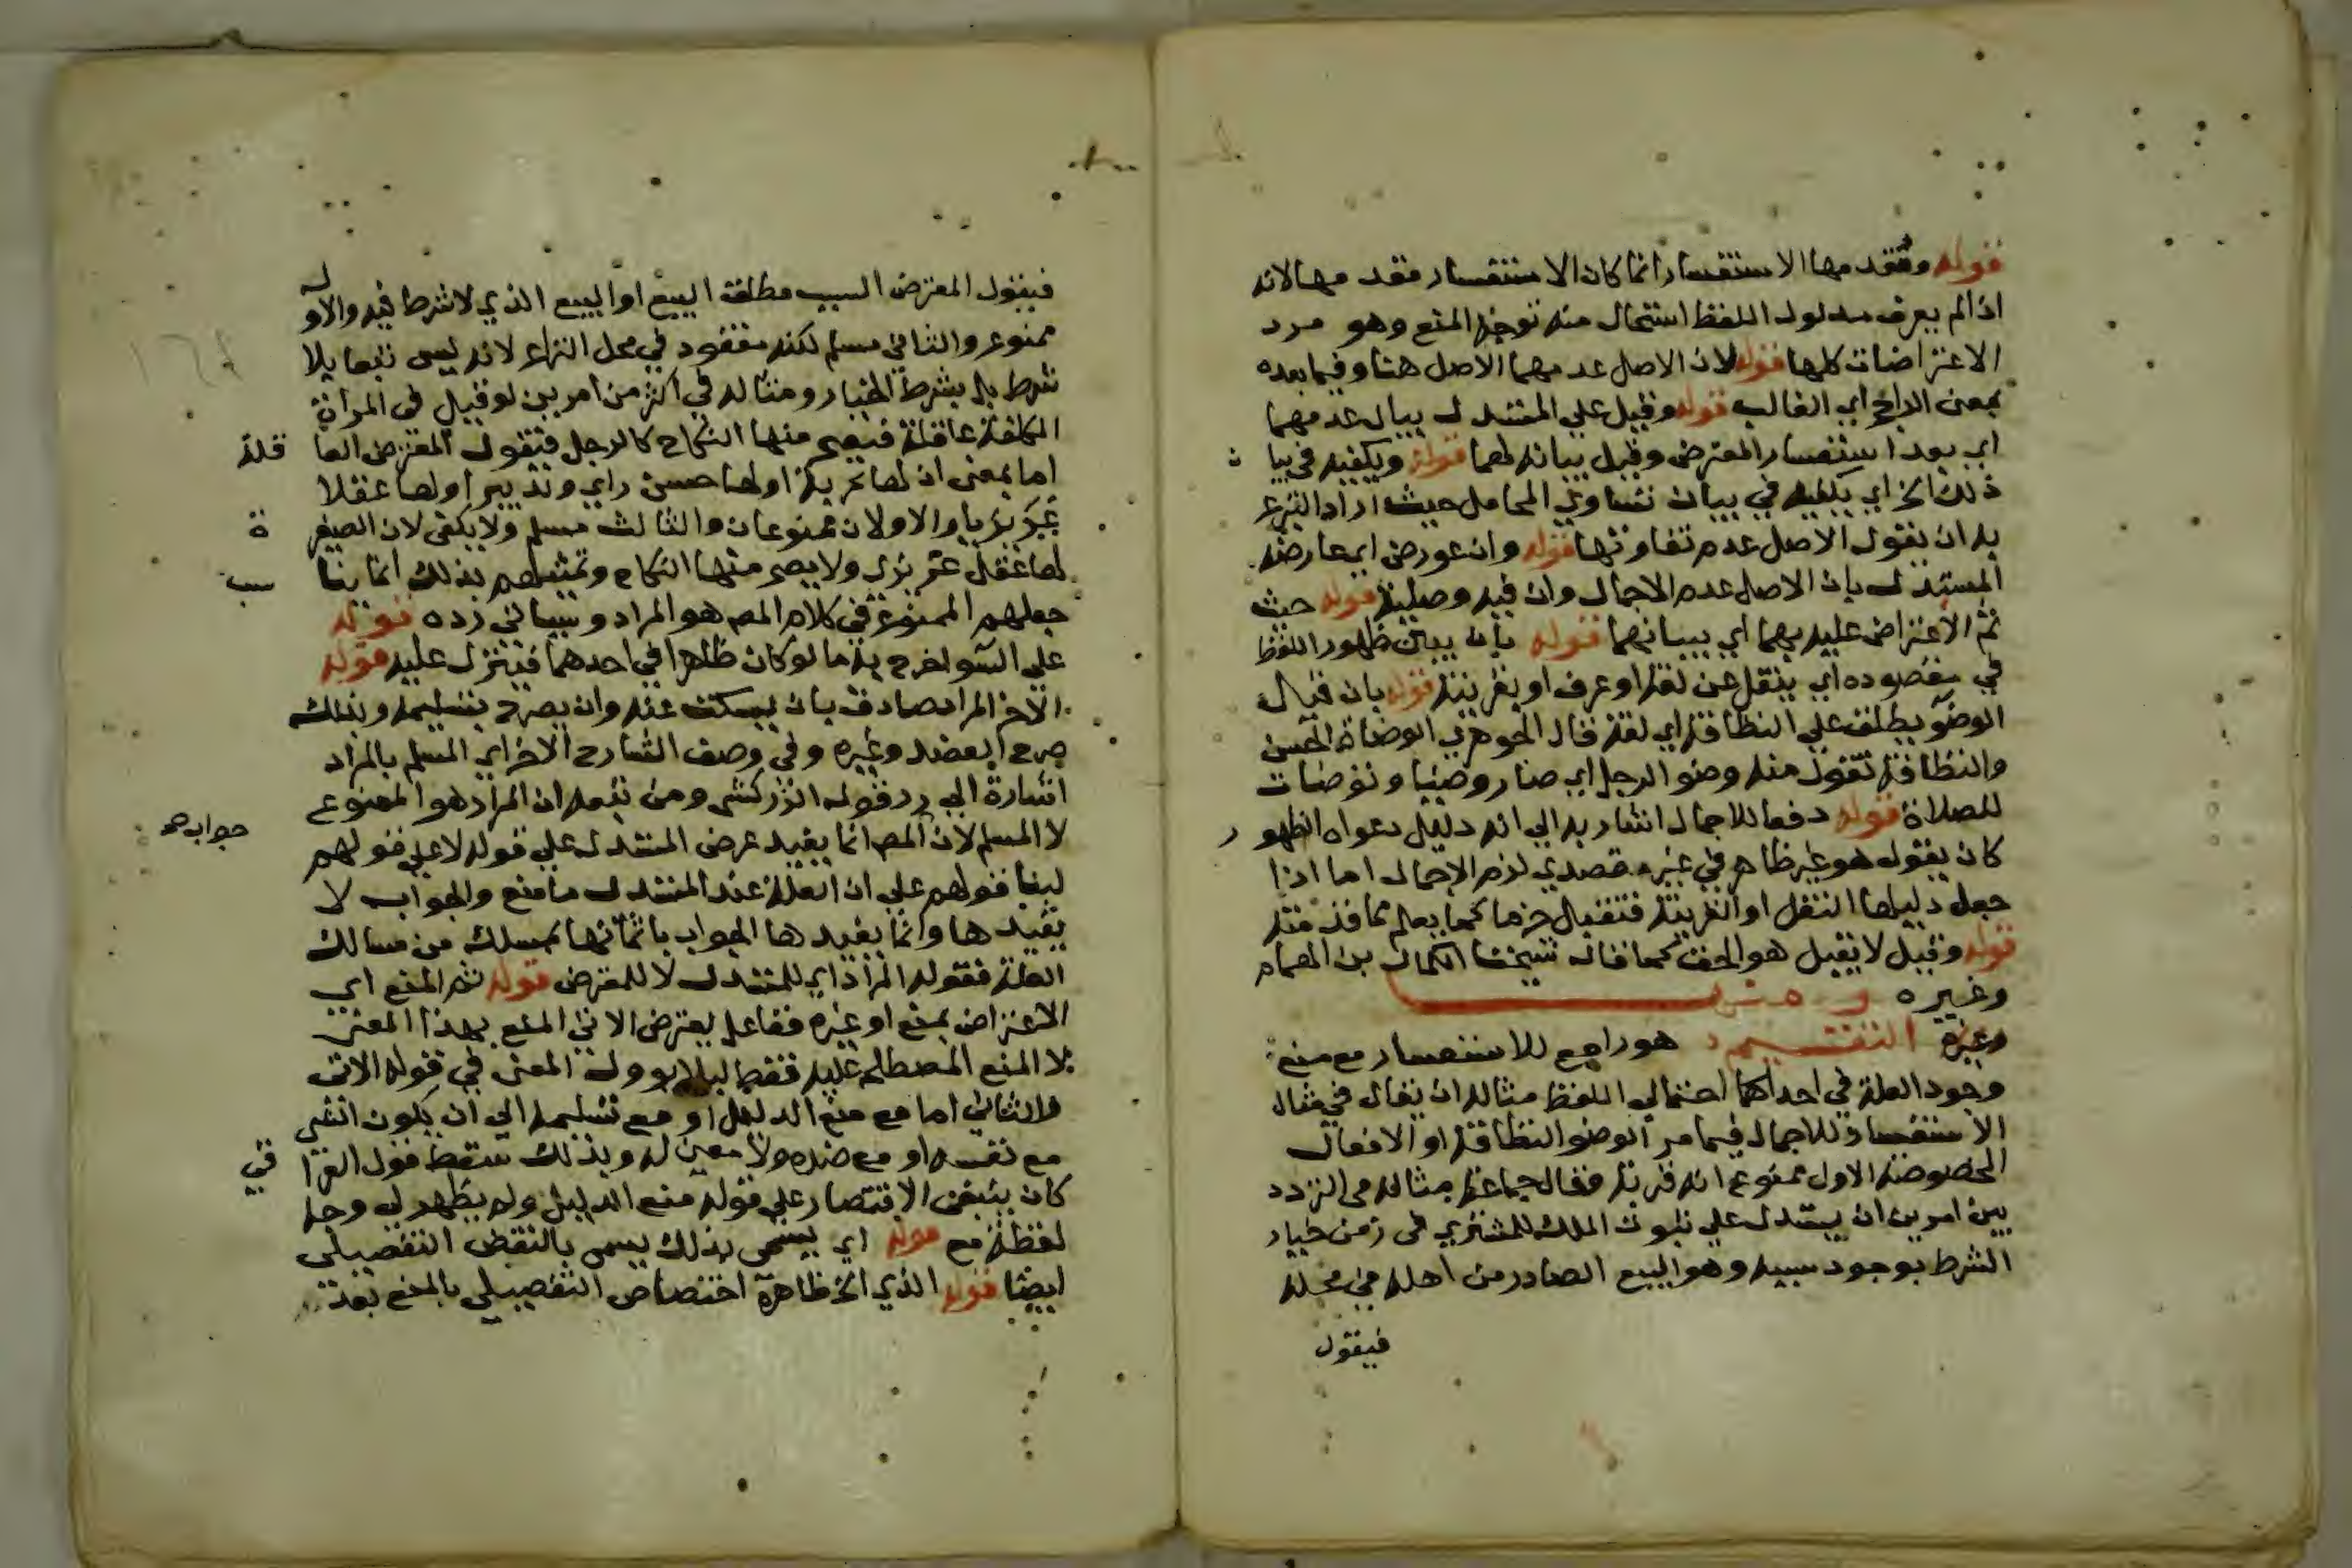 قوله ومقدمها الاستفسار انما كان الاستفسار مقدمها لانه
اذا لم يعرف مدلول اللفظ استحال منه توجه المنع وهو مرد
الاعتراضات كلها قوله لان الاصل عدمهما الاصل هنا وفيما بعده
بمعنى الراجح اي الغالب قوله وقيل على المستدل بيان عدمهما
اي بعد استفسار المعترض وقيل بيانه لهما قوله ويكفيه في بيا ن
ذلك الخ اي يكفيه في بيان تساوي المحامل حيث اراد التبرع
به ان يقول الاصل عدم تفاوتها قوله وان عورض اي عارضه
المستدل بان الاصل عدم الاجمال وان فيه وصلية قوله حيث
تم الاعتراض عليه بهما اي ببيانهما قوله بان يبين ظهور اللفظ
في مقصوده اي بنقل عن لغة او عرف او بقرينة قوله بان قال
الوضو يطلق على النظافة اي لغة قال الجوهري الوضاة الحسن
والنظافة تقول منه وضو الرجل اي صار وضيا وتوضات
للصلاة قوله دفعا للاجمال اشار به الى انه دليل دعواه الظهو ر
كان يقول هو غير ظاهر في غير مقصدي لزم الاجمال اما اذا
جعل دليلها النقل او القرينة فتقبل جزما كما يعلم مما قدمته
قوله وقيل لا يقبل هو الحق كما قاله شيخنا الكمال بن الهمام
وغيره
وغيره التقسيم هو راجع للاستفسار مع منع
وجود العلة في احد احتمالي اللفظ مثاله ان يقال في مثال
الاستفسار للاجمال فيما مر الوضو النظافة او الافعال
المخصوصة الاول ممنوع انه قربة فقال جماعة مثاله في التردد
بين امرين ان يستدل على ثبوت الملك للمشتري في زمن خيار
الشرط بوجود سببه وهو البيع الصادر من اهله في محله
فيقول
فيقول المعترض السبب مطلق البيع او البيع الذي لا شرط فيه والاو ل
ممنوع والثاني مسلم لكنه مفقود في محل النزاع لانه ليس بيعا بلا
شرط بل بشرط الخيار ومثاله في اكثر من امرين لو قيل في المراة
المكلفة عاقلة فيصح منها النكاح كالرجل فيقول المعترض العا قلة
اما بمعنى ان لها تجربة او لها حسن راي وتدبير او لها عقلا
غريزيا والاولان ممنوعان والثالث مسلم ولا يكفي لان الصغير ة
لها عقل غريزي ولا يصح منها النكاح وتمثيلهم بذلك انما ينا سب
جعلهم الممنوع في كلام المص هو المراد وسياتي رده قوله
على السو اخرج به ما لو كان ظاهرا في احدهما فينزل عليه قوله
الاخر المراد صادق بان يسكت عنه وان يصرح بتسليمه وبذلك
صرح العضد وغيره وفي وصف الشارح الاخر اي المسلم بالمراد
اشارة الى رد قول الزركشي ومن تبعه ان المراد هو الممنوع
لا المسلم لان المص انما يفيد غرض المستدل على قوله لا على قولهم جوابه
لبنا قولهم على ان العلة عند المستدل ما منع والجواب لا
يفيدها وانما يفيدها الجواب باثباتها بمسلك من مسالك
العلة فقوله المراد اي للمستدل لا للمعترض قوله ثم المنع اي
الاعتراض بمنع او غيره ففاعل يعترض الاتي المنع بهذا المعنى
لا المنع المصطلح عليه فقط ليلا يوول المعنى في قوله الاتي
والثاني اما مع منع الدليل او مع تسليمه الى ان يكون الشي
مع نفسه او مع ضده ولا معين له وبذلك سقط قول العرا قي
كان ينبغي الاقتصار على قوله منع الدليل ولم يظهر لي وجه
لفظة مع قوله اي يسمى بذلك يسمى بالنقض التفصيلي
ايضا قوله الذي الخ ظاهره اختصاص التفصيلي بالمنع بعد